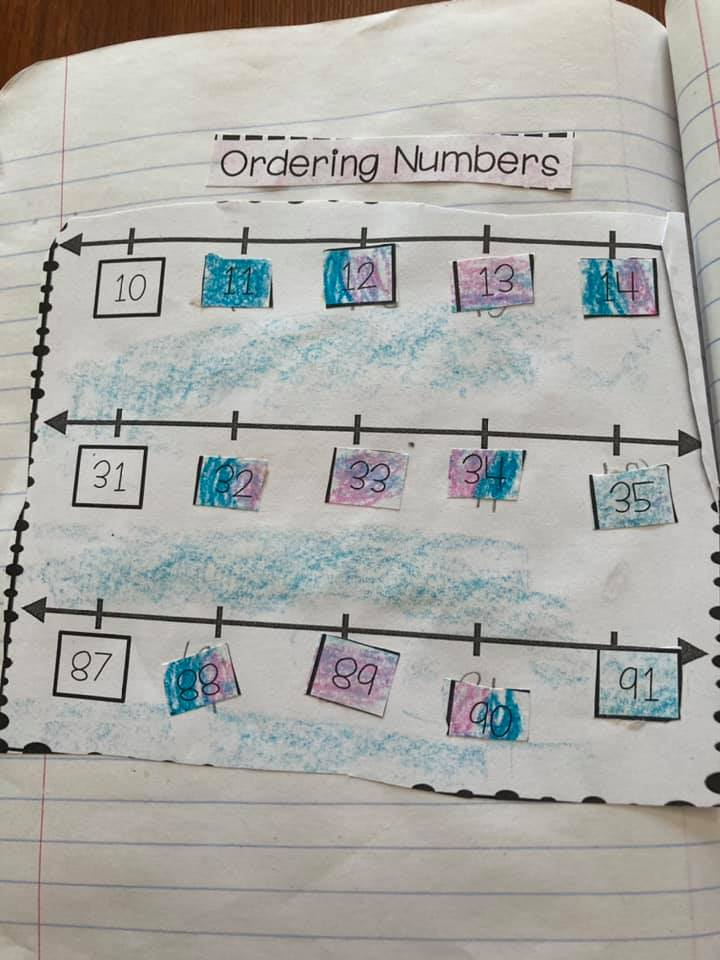 Ordering Numbers
10 11 12 13 14
31 32 33 34 35
87 88 89 90 91